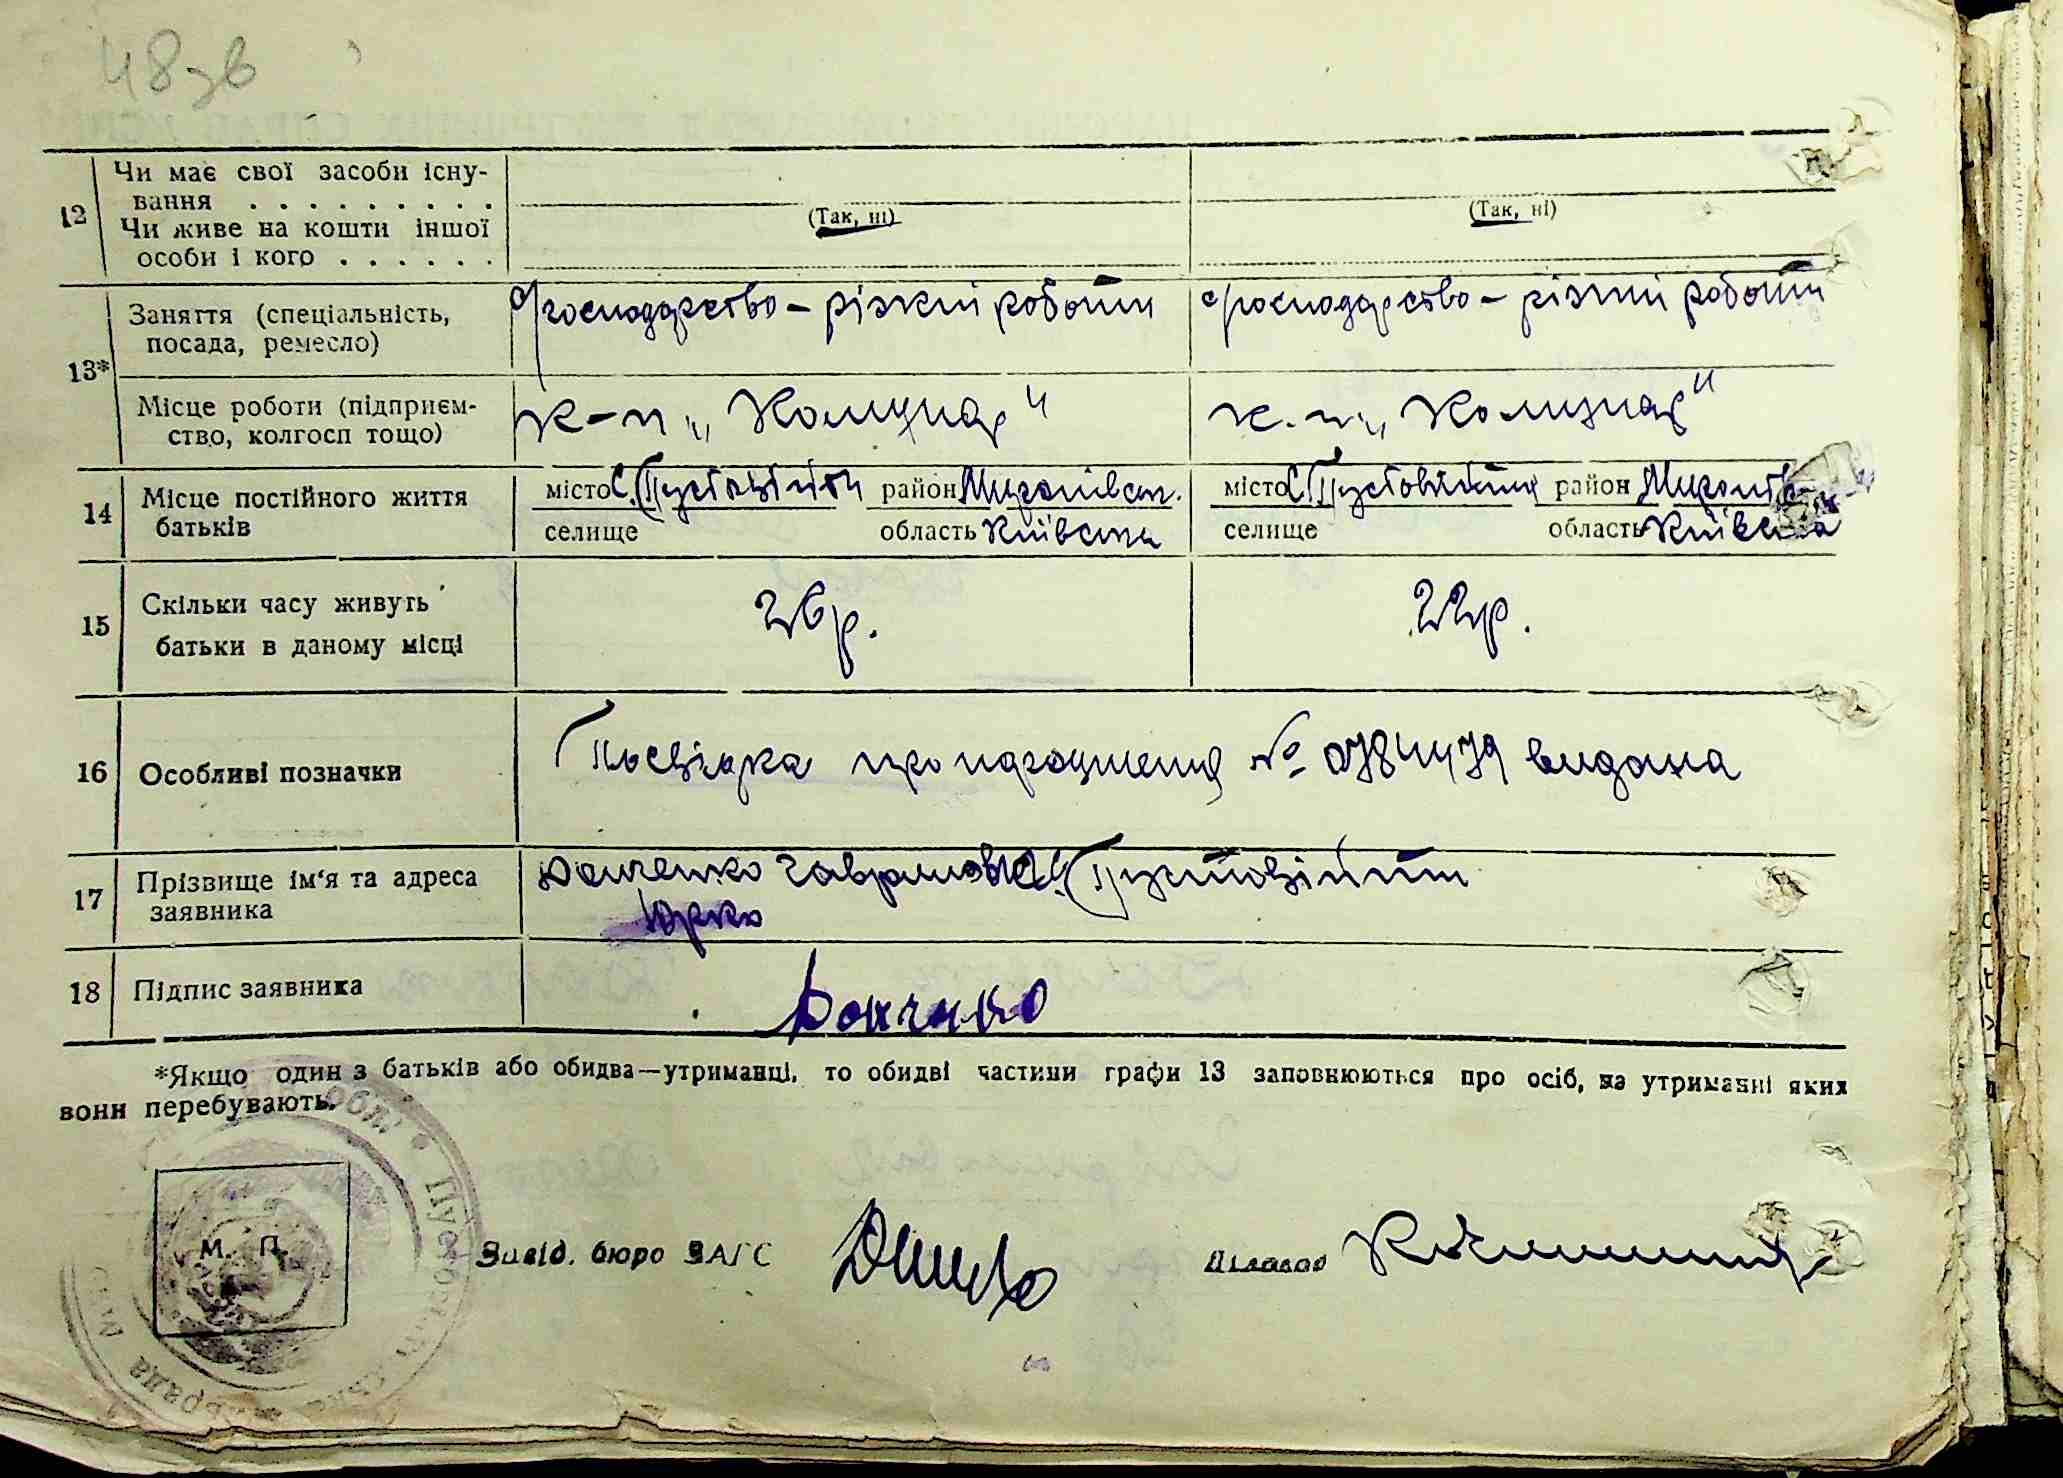 48зв
12
Чи має свої засоби існу-
вання . . . . . . . . .
Чи живе на кошти іншої
особи і кого . . . . . .
(Так, ні)
(Так, ні)
13*
Заняття (спеціальність,
посада, ремесло)
господарство – різкий роботи
господарство – різний роботи
Місце роботи (підприєм-
ство, колгосп тощо)
к-п „Комунар"
к.п. „Комунар"
14
Місце постійного життя
батьків
місто С. Пустовійти район Миронівськ.
селище область Київська
місто С. Пустовійти район
селище область Київська
15
Скільки часу живуть
батьки в даному місці
26р.
22р.
16
Особливі позначки
Посвідка про народження № видана
17
Прізвище ім'я та адреса
заявника
Донченко С. Пустовійти
Юрко
18
Підпис заявника
Донченко
*Якщо один з батьків або обидва—утриманці, то обидві частини графи 13 заповнюються про осіб, на утриманні яких
вони перебувають.
М. П.
Завід. бюро ЗАГС
Діловод